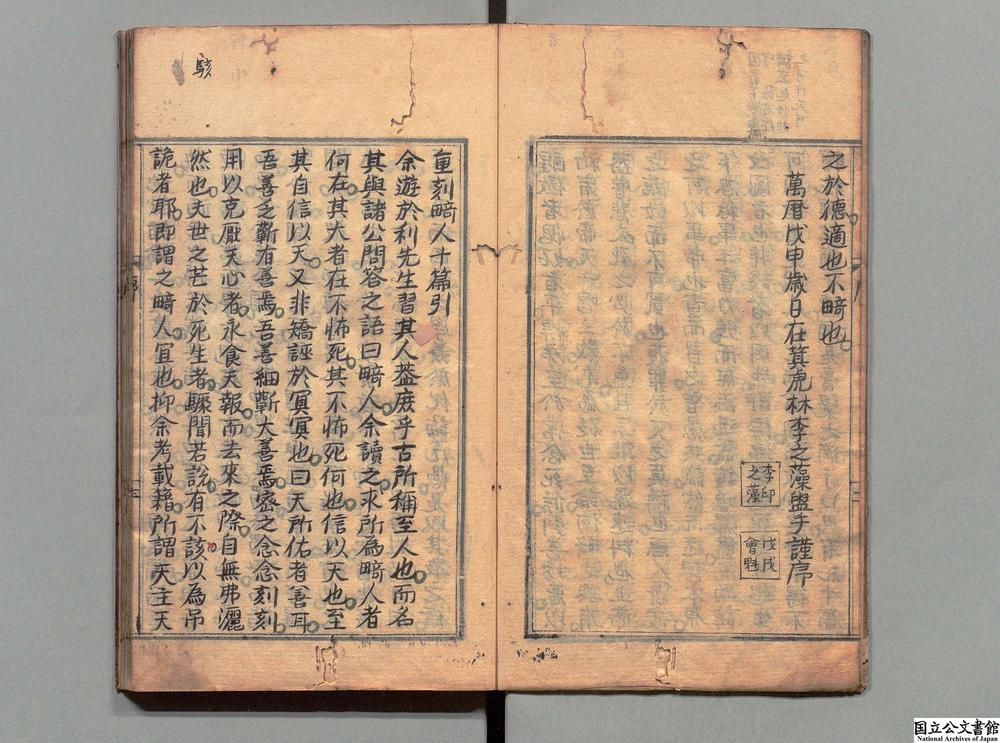 之於德適也不畸也
萬曆戊申歲日在箕虎林李之藻盥手謹序
李印
之藻
戊戌
會魁
重刻畸人十篇引
余遊於利先生習其人蓋庶乎古所稱至人也而名
其與諸公問答之語曰畸人余讀之求所為畸人者
何在其大者在不怖死其不怖死何也信以天也至
其自信以天又非矯誣於冥冥也曰天所佑者善耳
吾善乏蘄有善焉吾善細蘄大善焉密之念念刻刻
用以克厭天心者永食天報而去來之際自無弗灑
然也夫世之芒於死生者驟聞若說有不該以為吊
詭者耶即謂之畸人宜也抑余考載籍所謂天主天
駭
国立公文書館
National Archives of Japan